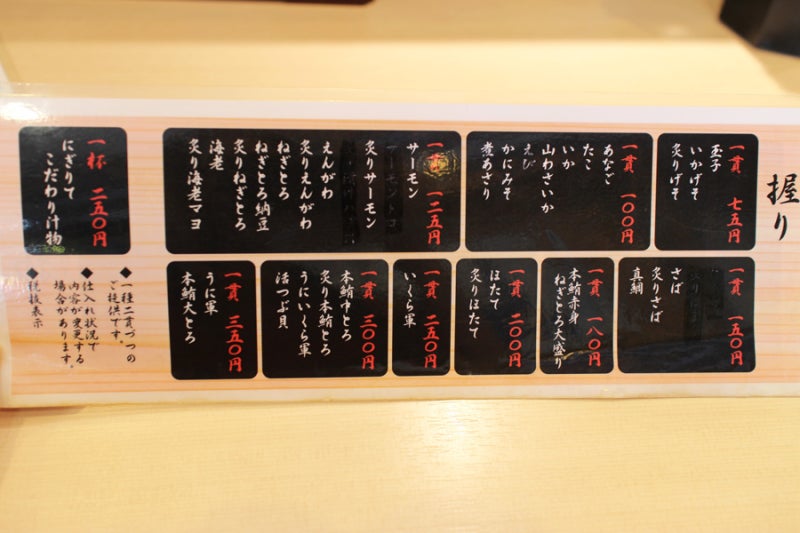 握り
一貫 七五円
玉子
いかげそ
炙りげそ
一貫 一〇〇円
あなご
たこ
いか
山わさいか
えび
かにみそ
煮あさり
一貫 一二五円
サーモン
炙りサーモン
えんがわ
炙りえんがわ
ねぎとろ
ねぎとろ納豆
炙りねぎとろ
海老
炙り海老マヨ
一杯 二五〇円
にぎりて
こだわり汁物
一貫 一五〇円
さば
炙りさば
真鯛
一貫 一八〇円
本鮪赤身
ねぎとろ大盛り
一貫 二〇〇円
ほたて
炙りほたて
一貫 二五〇円
いくら軍
一貫 三〇〇円
本鮪中とろ
炙り本鮪とろ
うにいくら軍
活つぶ貝
一貫 三五〇円
うに軍
本鮪大とろ
◆一種二貫づつの
ご提供です。
◆仕入れ状況で
内容が変更する
場合があります。
◆税抜表示